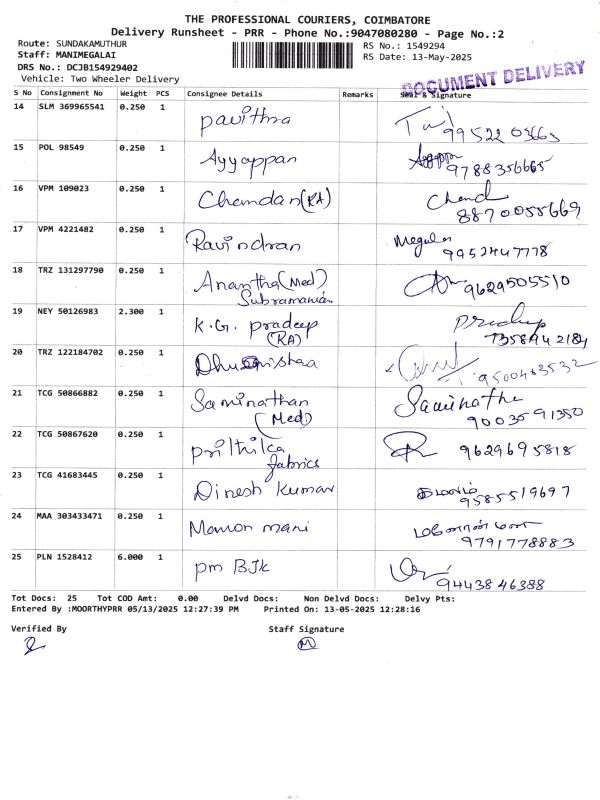 THE PROFESSIONAL COURIERS, COIMBATORE
Delivery Runsheet - PRR - Phone No.:9047080280 - Page No.:2
Route: SUNDAKAMUTHUR RS No.: 1549294
Staff: MANIMEGALAI RS Date: 13-May-2025
DRS No.: DCJB154929402
DOCUMENT DELIVERY
Vehicle: Two Wheeler Delivery
S No Consignment No Weight PCS Consignee Details Remarks Seal & Signature
14 SLM 369965541 0.250 1 Pavithra 99522 03663
15 POL 98549 0.250 1 Ayyappan 9788356665
16 VPM 109023 0.250 1 Chandan (RA) Chand
8870055669
17 VPM 4221482 0.250 1 Ravindran Megala
9952447778
18 TRZ 131297790 0.250 1 Anantha (Med) 9629505510
Subramanian
19 NEY 50126983 2.300 1 K.G. pradeep Pradeep
(RA)
20 TRZ 122184702 0.250 1 9500463532
21 TCG 50866882 0.250 1 Saminathan Saminatha
(Med) 9003591350
22 TCG 50867620 0.250 1 9629695818
fabrics
23 TCG 41683445 0.250 1 Dinesh Kumar கமலம்
9585519697
24 MAA 303433471 0.250 1 Manon mani மனோன்மணி
9791778883
25 PLN 1528412 6.000 1 pm BJk
9443846388
Tot Docs: 25 Tot COD Amt: 0.00 Delvd Docs: Non Delvd Docs: Delvy Pts:
Entered By :MOORTHYPRR 05/13/2025 12:27:39 PM Printed On: 13-05-2025 12:28:16
Verified By Staff Signature
M